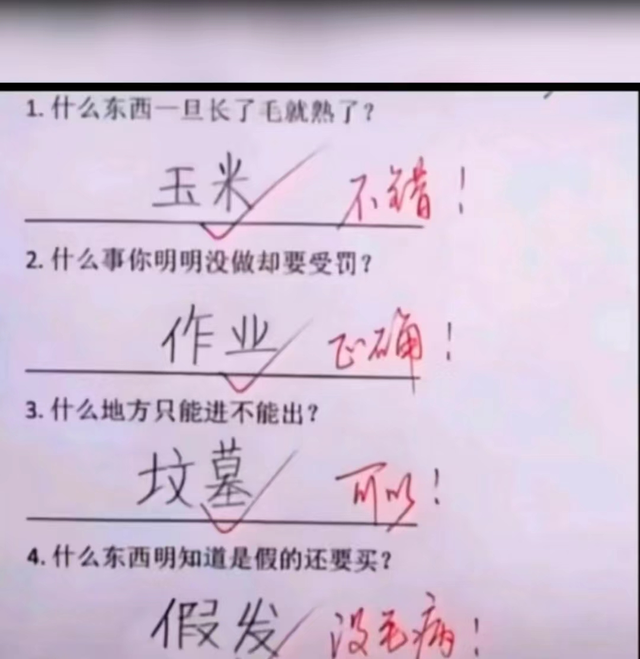 1. 什么东西一旦长了毛就熟了?
玉米 不错!
2. 什么事你明明没做却要受罚?
作业 正确!
3. 什么地方只能进不能出?
坟墓 可以!
4. 什么东西明知道是假的还要买?
假发 没毛病!